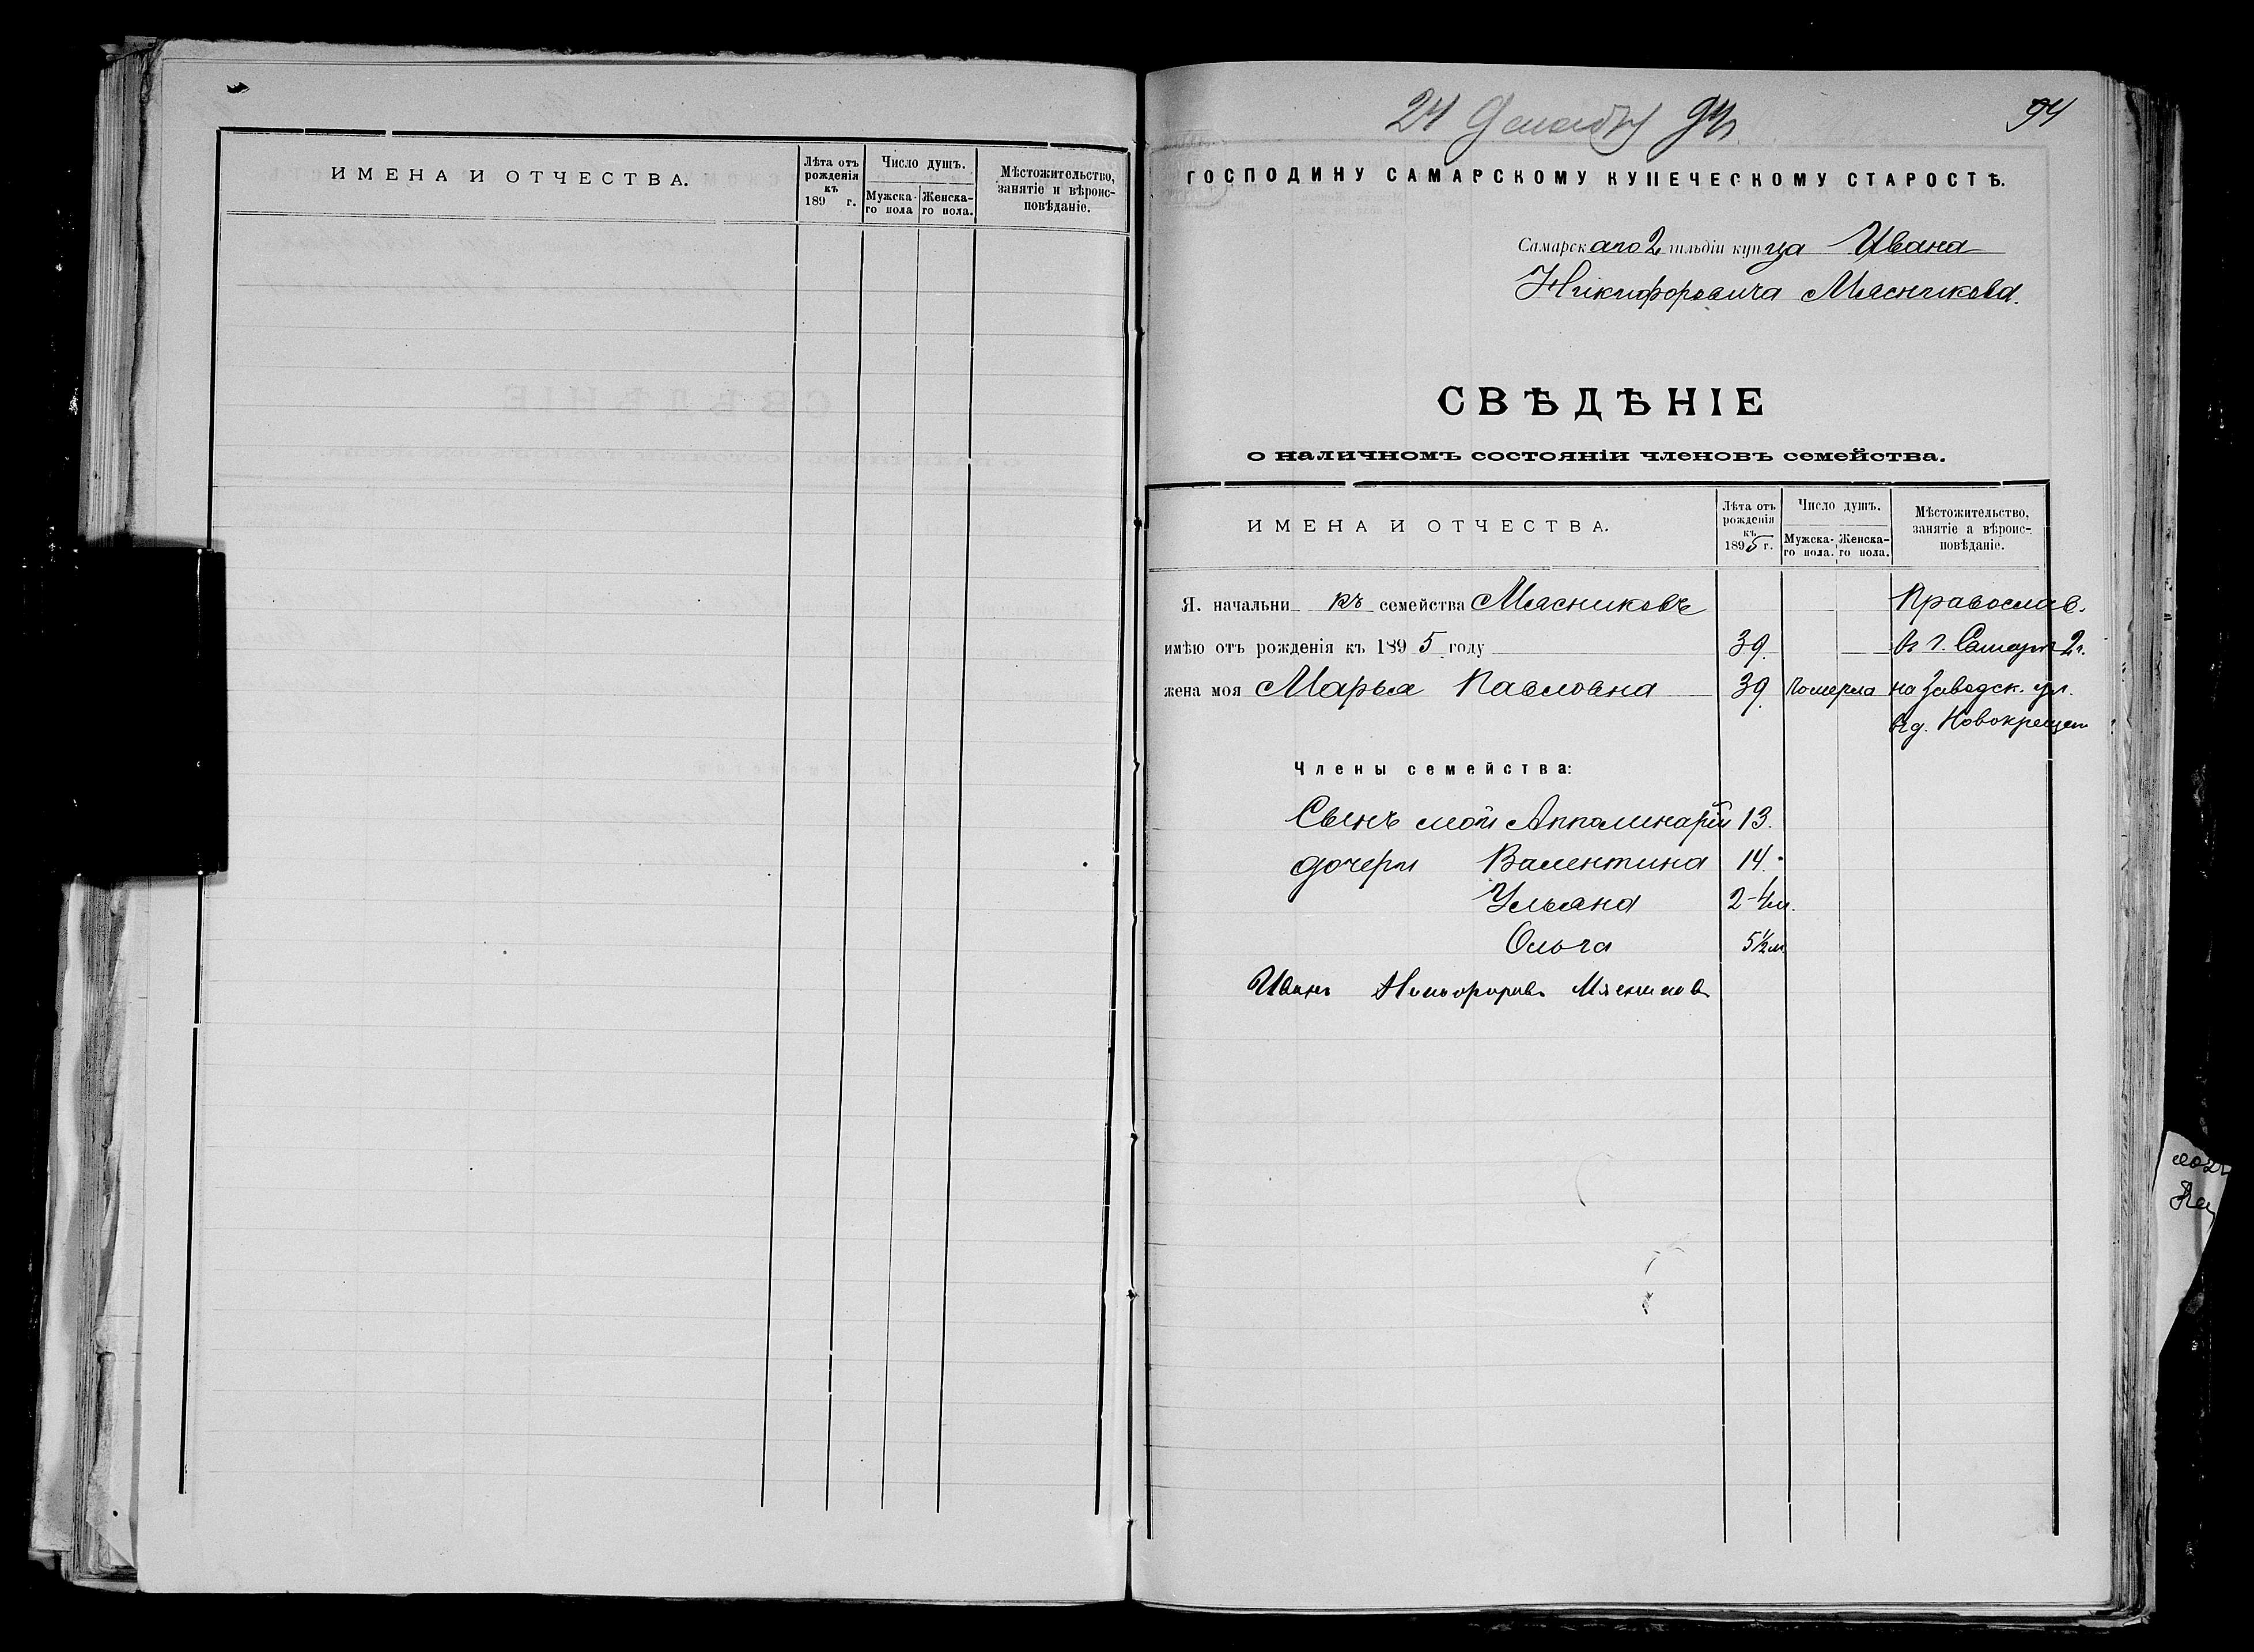 ИМЕНА И ОТЧЕСТВА.
Лѣта отъ рожденія къ 189 г.
Число душъ.
Мужска-го пола
Женска-го пола.
Мѣстожительство, занятіе и вѣроис-повѣданіе.
24 Декабря 94 г.
94
ГОСПОДИНУ САМАРСКОМУ КУПЕЧЕСКОМУ СТАРОСТѢ.
Самарскаго 2 гильдіи купца Ивана
Никифоровича Мясникова.
СВѢДѢНІЕ
о наличномъ состояніи членовъ семейства.
ИМЕНА И ОТЧЕСТВА.
Лѣта отъ рожденія къ 1895 г.
Число душъ.
Мужска-го пола.
Женска-го пола.
Мѣстожительство, занятіе а вѣроис-повѣданіе.
Я. начальникъ семейства Мясниковъ Православ.
имѣю отъ рожденія къ 1895 году 39. въ г. Самарѣ 2 ч.
жена моя Марья Павловна 39. Померла на Заводск. ул.
въ д. Новокрещен
Члены семейства:
Сынъ мой Апполинарій 13.
дочери Валентина 14.
Ульяна 2-4 м.
Ольга 5½ м
Иванъ Никифоровъ Мясниковъ